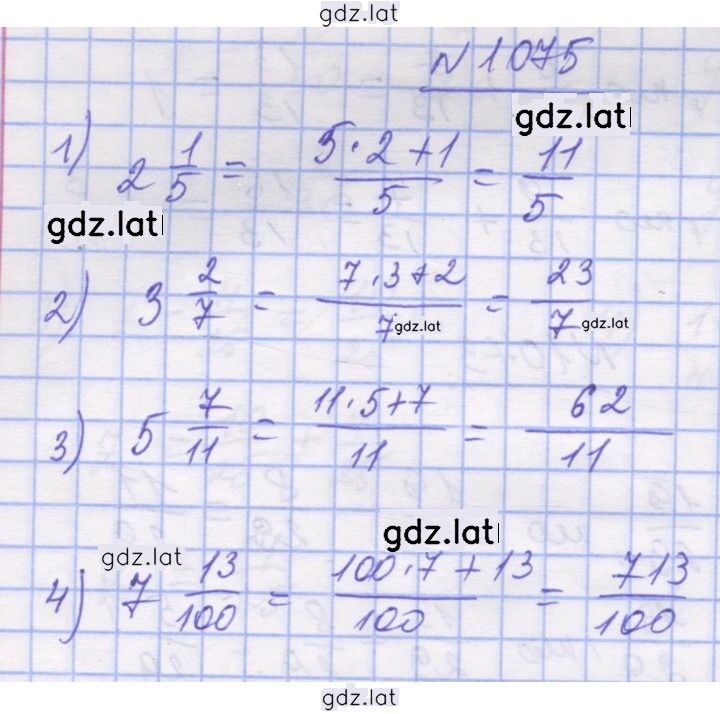 gdz.lat
N 1075
gdz.lat
1) 2 1/5 = (5·2+1)/5 = 11/5
gdz.lat
2) 3 2/7 = (7·3+2)/7 = 23/7
gdz.lat gdz.lat
3) 5 7/11 = (11·5+7)/11 = 62/11
gdz.lat
gdz.lat
4) 7 13/100 = (100·7+13)/100 = 713/100
gdz.lat